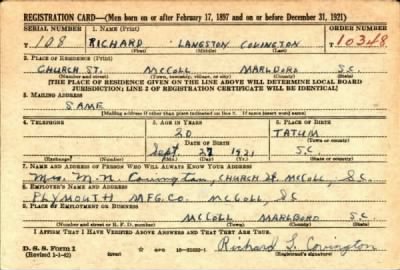 REGISTRATION CARD—(Men born on or after February 17, 1897 and on or before December 31, 1921)
SERIAL NUMBER 1. NAME (Print) ORDER NUMBER
T 108 RICHARD LANGSTON COVINGTON 10348
(First) (Middle) (Last)
2. PLACE OF RESIDENCE (Print)
CHURCH ST. MCCOLL MARLBORO S.C.
(Number and street) (Town, township, village, or city) (County) (State)
[THE PLACE OF RESIDENCE GIVEN ON THE LINE ABOVE WILL DETERMINE LOCAL BOARD
JURISDICTION; LINE 2 OF REGISTRATION CERTIFICATE WILL BE IDENTICAL]
3. MAILING ADDRESS
SAME
[Mailing address if other than place indicated on line 2. If same insert word same]
4. TELEPHONE 5. AGE IN YEARS 6. PLACE OF BIRTH
20 TATUM
DATE OF BIRTH (Town or county)
Sept. 27 1921 S.C.
(Exchange) (Number) (Mo.) (Day) (Yr.) (State or country)
7. NAME AND ADDRESS OF PERSON WHO WILL ALWAYS KNOW YOUR ADDRESS
Mrs. M. N. Covington, CHURCH St. MCCOLL, S.C.
8. EMPLOYER'S NAME AND ADDRESS
PLYMOUTH MFG. CO. MCCOLL, SC
9. PLACE OF EMPLOYMENT OR BUSINESS
MCCOLL MARLBORO S.C.
(Number and street or R. F. D. number) (Town) (County) (State)
I AFFIRM THAT I HAVE VERIFIED ABOVE ANSWERS AND THAT THEY ARE TRUE.
D. S. S. Form 1 Richard L. Covington
(Revised 1-1-42) (Registrant's signature)